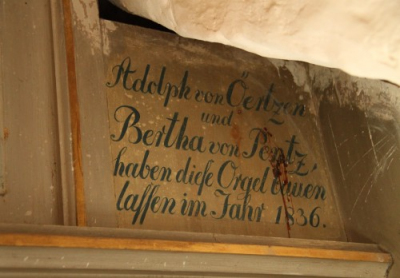 Adolph von Öertzen
und
Bertha von Pentz,
haben diese Orgel bauen
lassen im Jahr 1836.